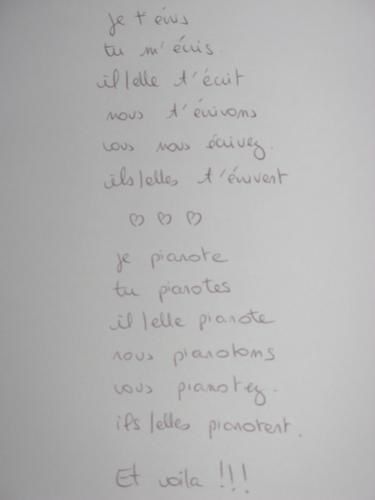 je t'écris
tu m'écris.
il/elle t'écrit
nous t'écrivons
vous nous écrivez.
ils/elles t'écrivent
je pianote
tu pianotes
il/elle pianote
nous pianotons
vous pianotez.
ils/elles pianotent.
Et voila !!!